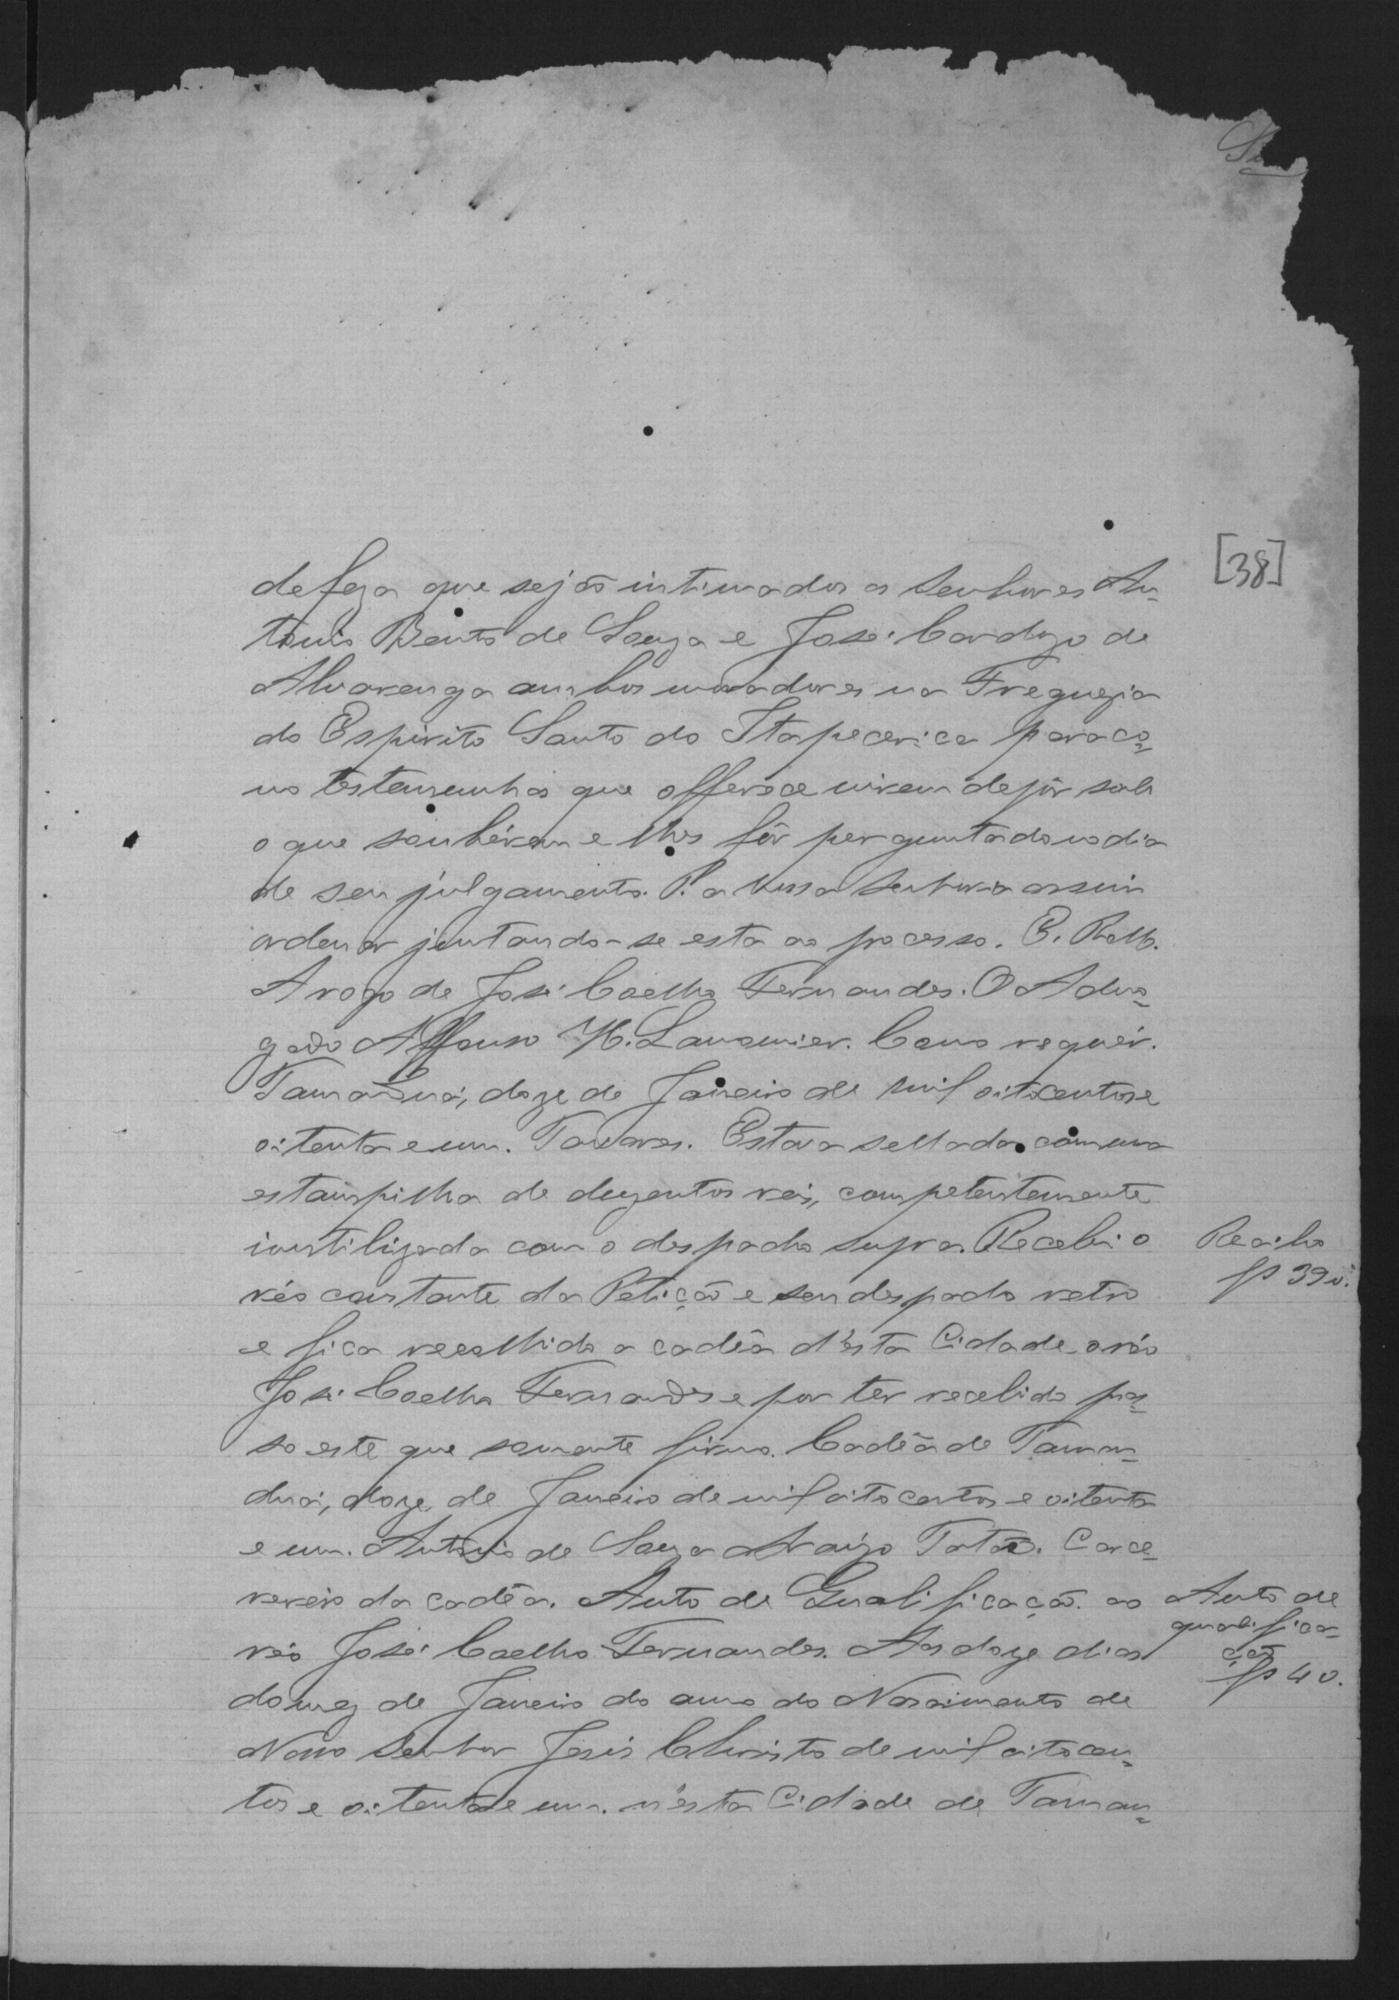 [38]
defeza que sejão intimados os Senhores An-
tonio Bento de Souza e José Cardozo de
Alvarenga ambos moradores na Freguezia
do Espirito Santo do Itapecerica para co-
mo testemunhas que offerece virem depôr sob
o que souhérem e lhes fôr perguntado no dia
de seu julgamento. P. a Vossa Senhoria assim
ordenar juntando-se esta ao processo. E. R. M.
A rogo de José Coelho Fernandes. O Advo-
gado Affonso H. Lamounier. Como requér.
Tamanduá, doze de Janeiro de mil oitocentos e
oitenta e um. Tavares. Estava sellada com uma
estampilha de duzentos reis, competentemente
inutilizada com o despacho supra. Recebi o
réo constante da Petição e seu despacho retro
e fica recolhido a cadêa d'ésta Cidade o réo
José Coelho Fernandes e por ter recebido pas-
so este que somente firmo. Cadêa de Taman-
duá, doze de Janeiro de mil oito centos e oitenta
e um. Antonio de Souza Araújo Tatão. Carce-
rereiro da cadêa. Auto de Qualificação ao
réo José Coelho Fernandes. Aos doze dias
do mez de Janeiro do anno do Nascimento de
Nosso Senhor Jesús Christo de mil oitocen-
tos e oitenta e um. n'ésta Cidade de Taman-
Recibo
fs 39 v.
Auto de
qualifica-
ção
fs 40.